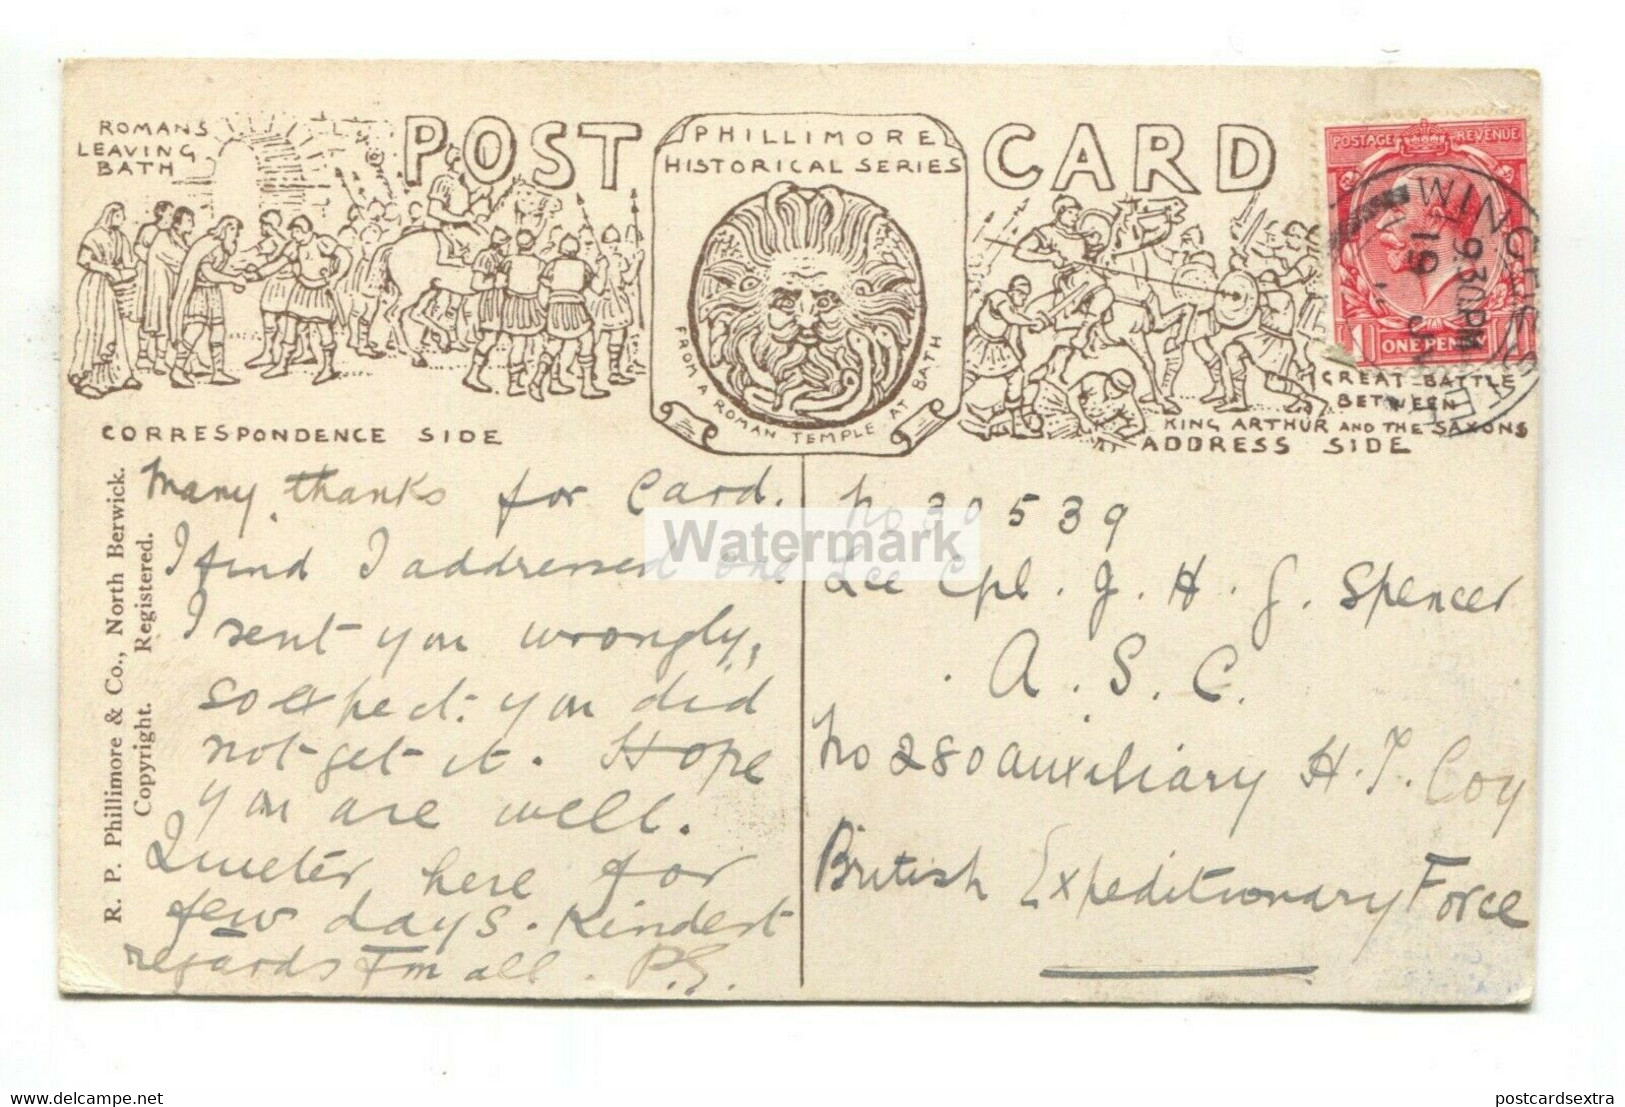 ROMANS
LEAVING
BATH
POST CARD
PHILLIMORE
HISTORICAL SERIES
FROM A ROMAN TEMPLE AT BATH
POSTAGE REVENUE
ONE PENNY
9.30 PM
19
GREAT BATTLE
BETWEEN
KING ARTHUR AND THE SAXONS
CORRESPONDENCE SIDE
ADDRESS SIDE
R. P. Phillimore & Co., North Berwick.
Copyright. Registered.
Many thanks for Card.
I find I addressed one
I sent you wrongly,
so expect you did
not get it. Hope
you are well.
Quieter here for
few days. Kindest
regards Fm all. P.S.
No 30539
Lce Cpl. J. H. J. Spencer
A. S. C.
No 280 Auxiliary H. T. Coy
British Expeditionary Force
Watermark
delcampe.net
postcardsextra